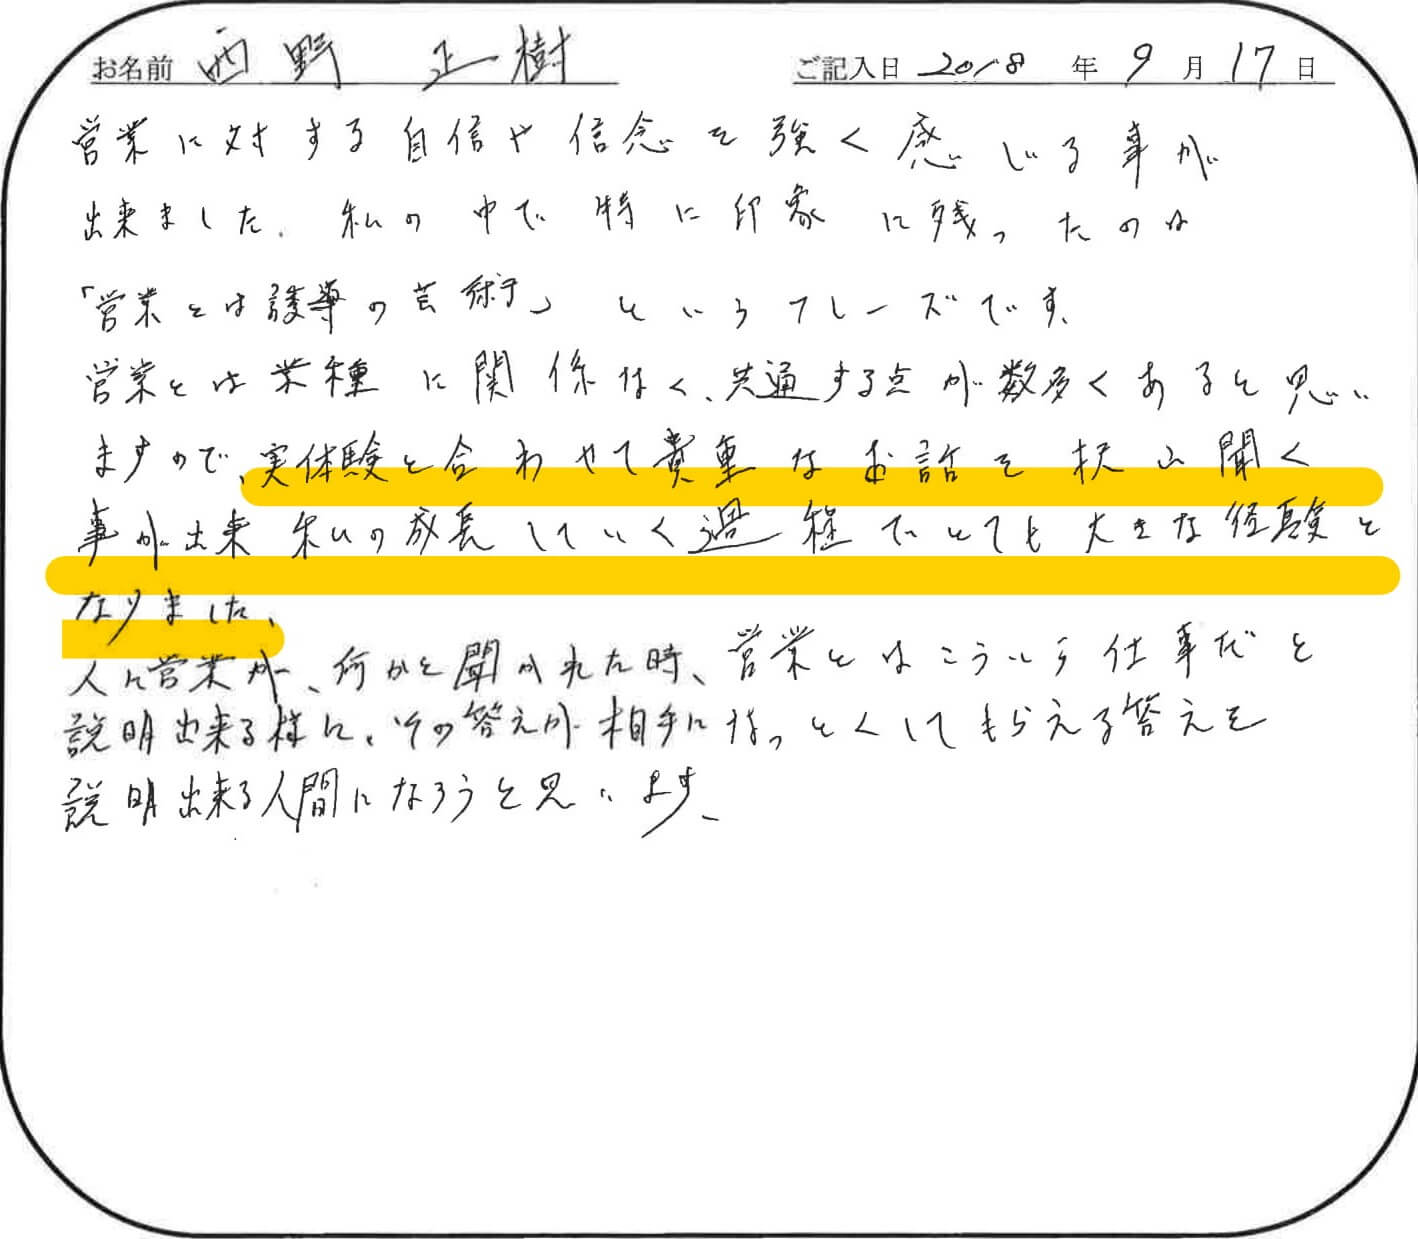 お名前 西野 正樹 ご記入日 2018 年 9 月 17 日
営業に対する自信や信念を強く感じる事が
出来ました。私の中で特に印象に残ったのは
「営業とは誘導の芸術」というフレーズです。
営業とは業種に関係なく、共通する点が数多くあると思い
ますので、実体験と合わせて貴重なお話を沢山聞く
事が出来私の成長していく過程でとても大きな経験と
なりました、
人に営業が、何かと聞かれた時、営業とはこういう仕事だと
説明出来る様に、その答えが相手になっとくしてもらえる答えを
説明出来る人間になろうと思います、